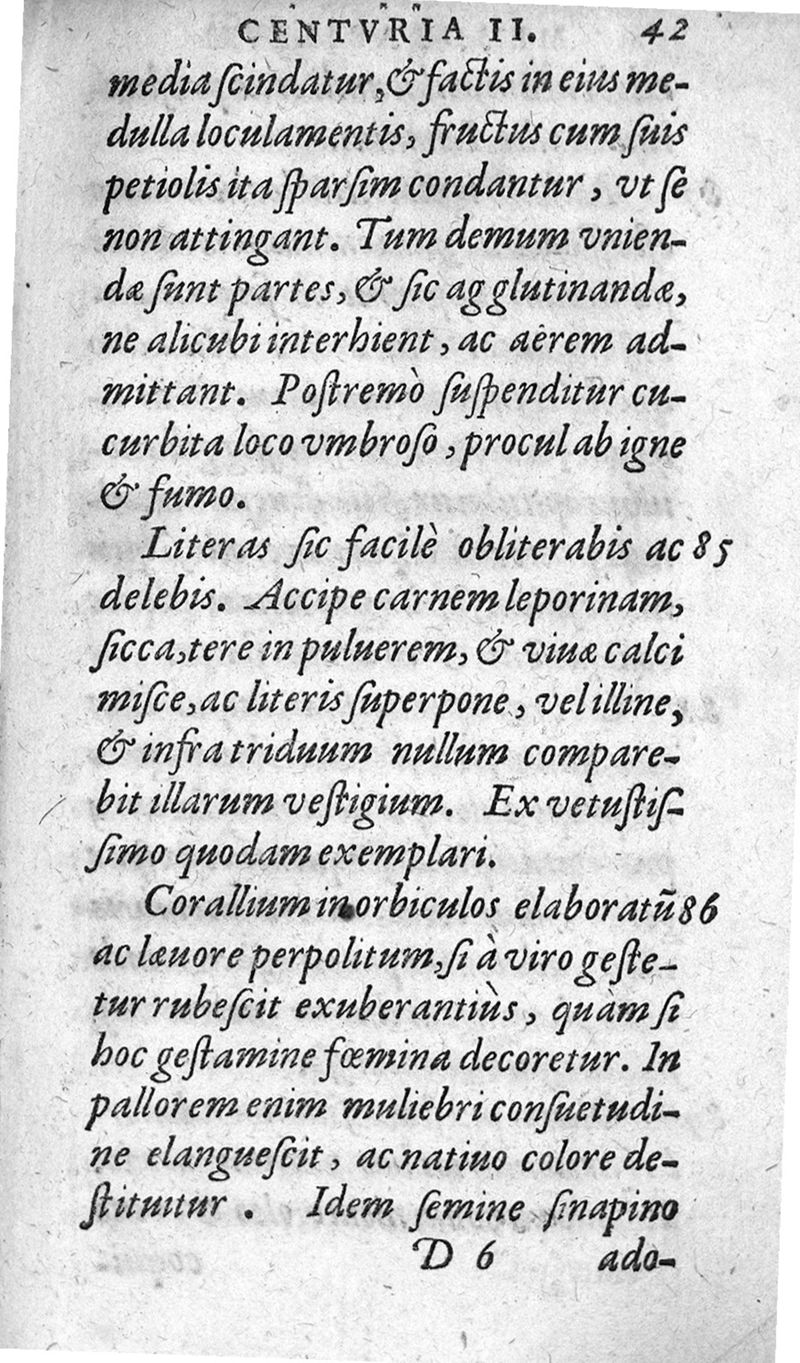 CENTVRIA II. 42
media ſcindatur, & factis in eius me-
dulla loculamentis, fructus cum ſuis
petiolis ita ſparſim condantur, vt ſe
non attingant. Tum demum vnien-
dæ ſunt partes, & ſic agglutinandæ,
ne alicubi interhient, ac aërem ad-
mittant. Poſtremò ſuſpenditur cu-
curbita loco vmbroſo, procul ab igne
& fumo.
Literas ſic facilè obliterabis ac 85
delebis. Accipe carnem leporinam,
ſicca, tere in puluerem, & viuæ calci
miſce, ac literis ſuperpone, vel illine,
& infra triduum nullum compare-
bit illarum veſtigium. Ex vetuſtiſ-
ſimo quodam exemplari.
Corallium in orbiculos elaboratũ 86
ac læuore perpolitum, ſi à viro geſte-
tur rubeſcit exuberantiùs, quàm ſi
hoc geſtamine fœmina decoretur. In
pallorem enim muliebri conſuetudi-
ne elangueſcit, ac natiuo colore de-
ſtituitur. Idem ſemine ſinapino
D 6 ado-